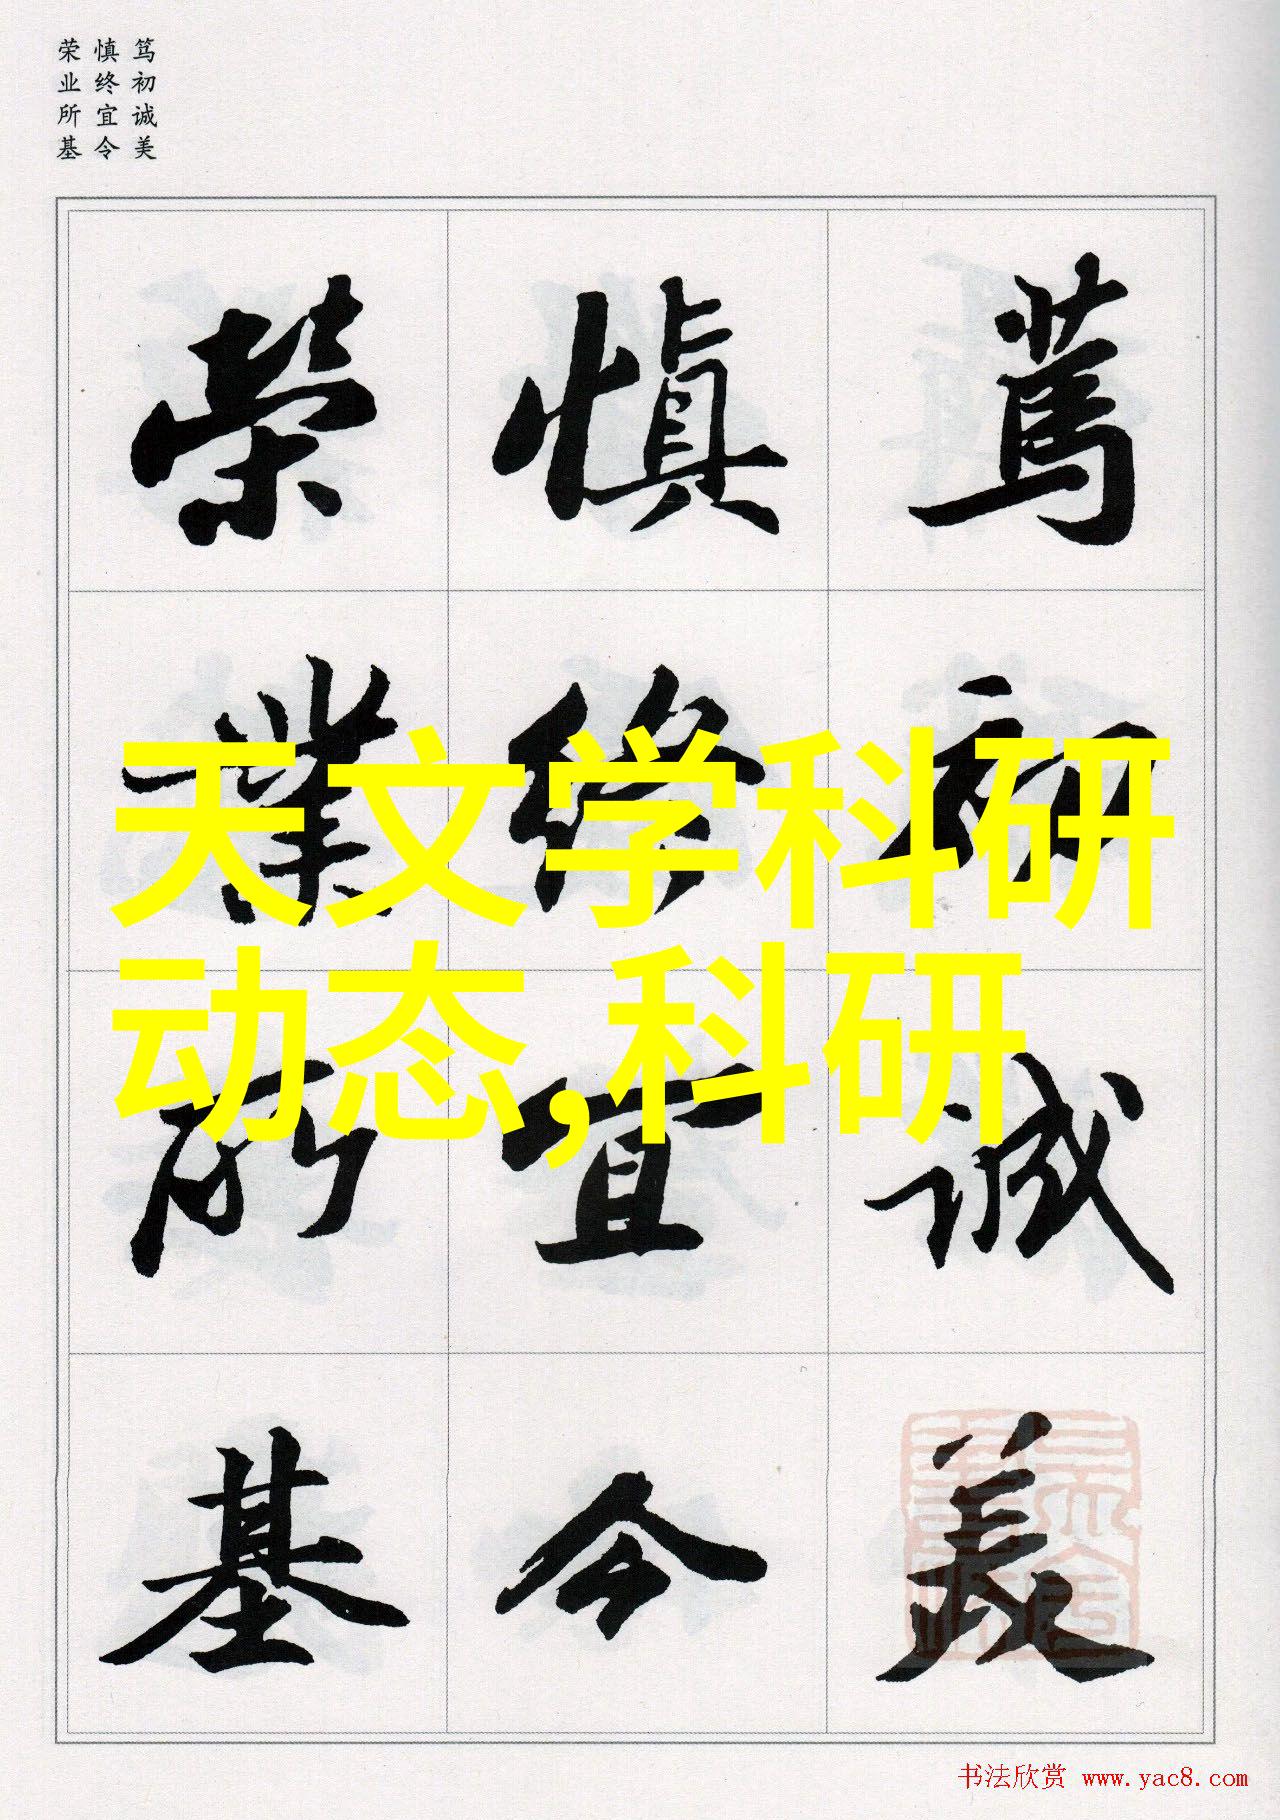 笃初诚美
慎终宜令
荣业所基
篤初誠美
慎终宜令
榮業所基
天文学科研
动态,科研
书法欣赏 www.yac8.com